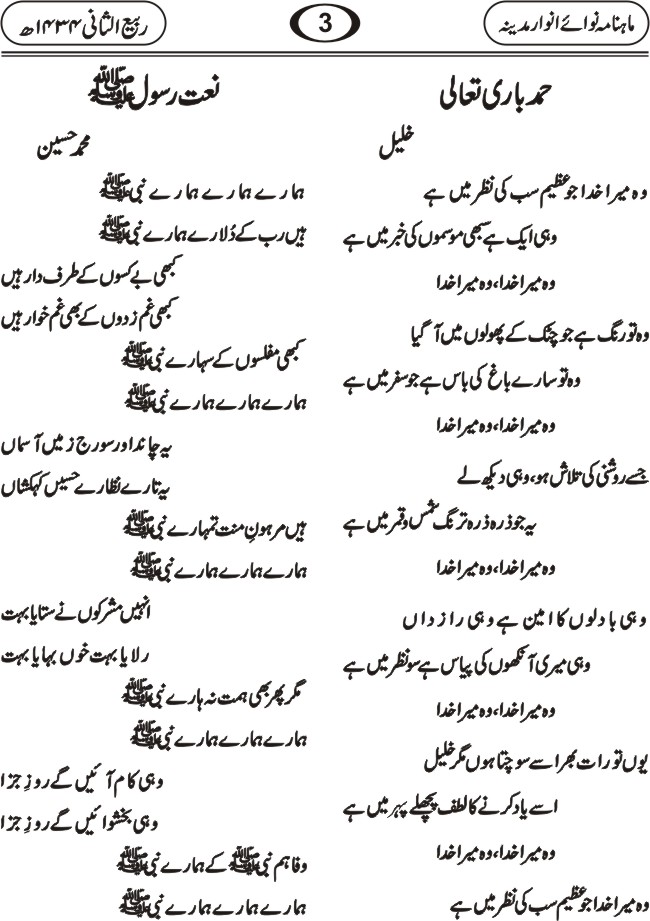 ماہنامہ نوائے انوار مدینہ
3
ربیع الثانی ۱۴۳۴ھ
حمد باری تعالی
خلیل
وہ میرا خدا جو عظیم سب کی نظر میں ہے
وہی ایک ہے سبھی موسموں کی خبر میں ہے
وہ میرا خدا، وہ میرا خدا
وہ تو رنگ ہے جو چٹک کے پھولوں میں آ گیا
وہ تو سارے باغ کی باس ہے جو سفر میں ہے
وہ میرا خدا، وہ میرا خدا
جسے روشنی کی تلاش ہو، وہی دیکھ لے
یہ جو ذرہ ذرہ ترنگ شمس و قمر میں ہے
وہ میرا خدا، وہ میرا خدا
وہی بادلوں کا امین ہے وہی رازداں
وہی میری آنکھوں کی پیاس ہے سو نظر میں ہے
وہ میرا خدا، وہ میرا خدا
یوں تو رات بھر اسے سوچتا ہوں مگر خلیل
اسے یاد کرنے کا لطف پچھلے پہر میں ہے
وہ میرا خدا، وہ میرا خدا
وہ میرا خدا جو عظیم سب کی نظر میں ہے
نعت رسول ﷺ
محمد حسین
ہمارے ہمارے ہمارے نبی ﷺ
ہیں رب کے دُلارے ہمارے نبی ﷺ
کبھی بے کسوں کے طرف دار ہیں
کبھی غم زدوں کے بھی غم خوار ہیں
کبھی مفلسوں کے سہارے نبی ﷺ
ہمارے ہمارے ہمارے نبی ﷺ
یہ چاند اور سورج زمیں آسماں
یہ تارے نظارے حسیں کہکشاں
ہیں مرہونِ منت تمہارے نبی ﷺ
ہمارے ہمارے ہمارے نبی ﷺ
انہیں مشرکوں نے ستایا بہت
رلایا بہت خوں بہایا بہت
مگر پھر بھی ہمت نہ ہارے نبی ﷺ
ہمارے ہمارے ہمارے نبی ﷺ
وہی کام آئیں گے روزِ جزا
وہی بخشوائیں گے روزِ جزا
وفا ہم نبی ﷺ کے ہمارے نبی ﷺ
ہمارے ہمارے ہمارے نبی ﷺ